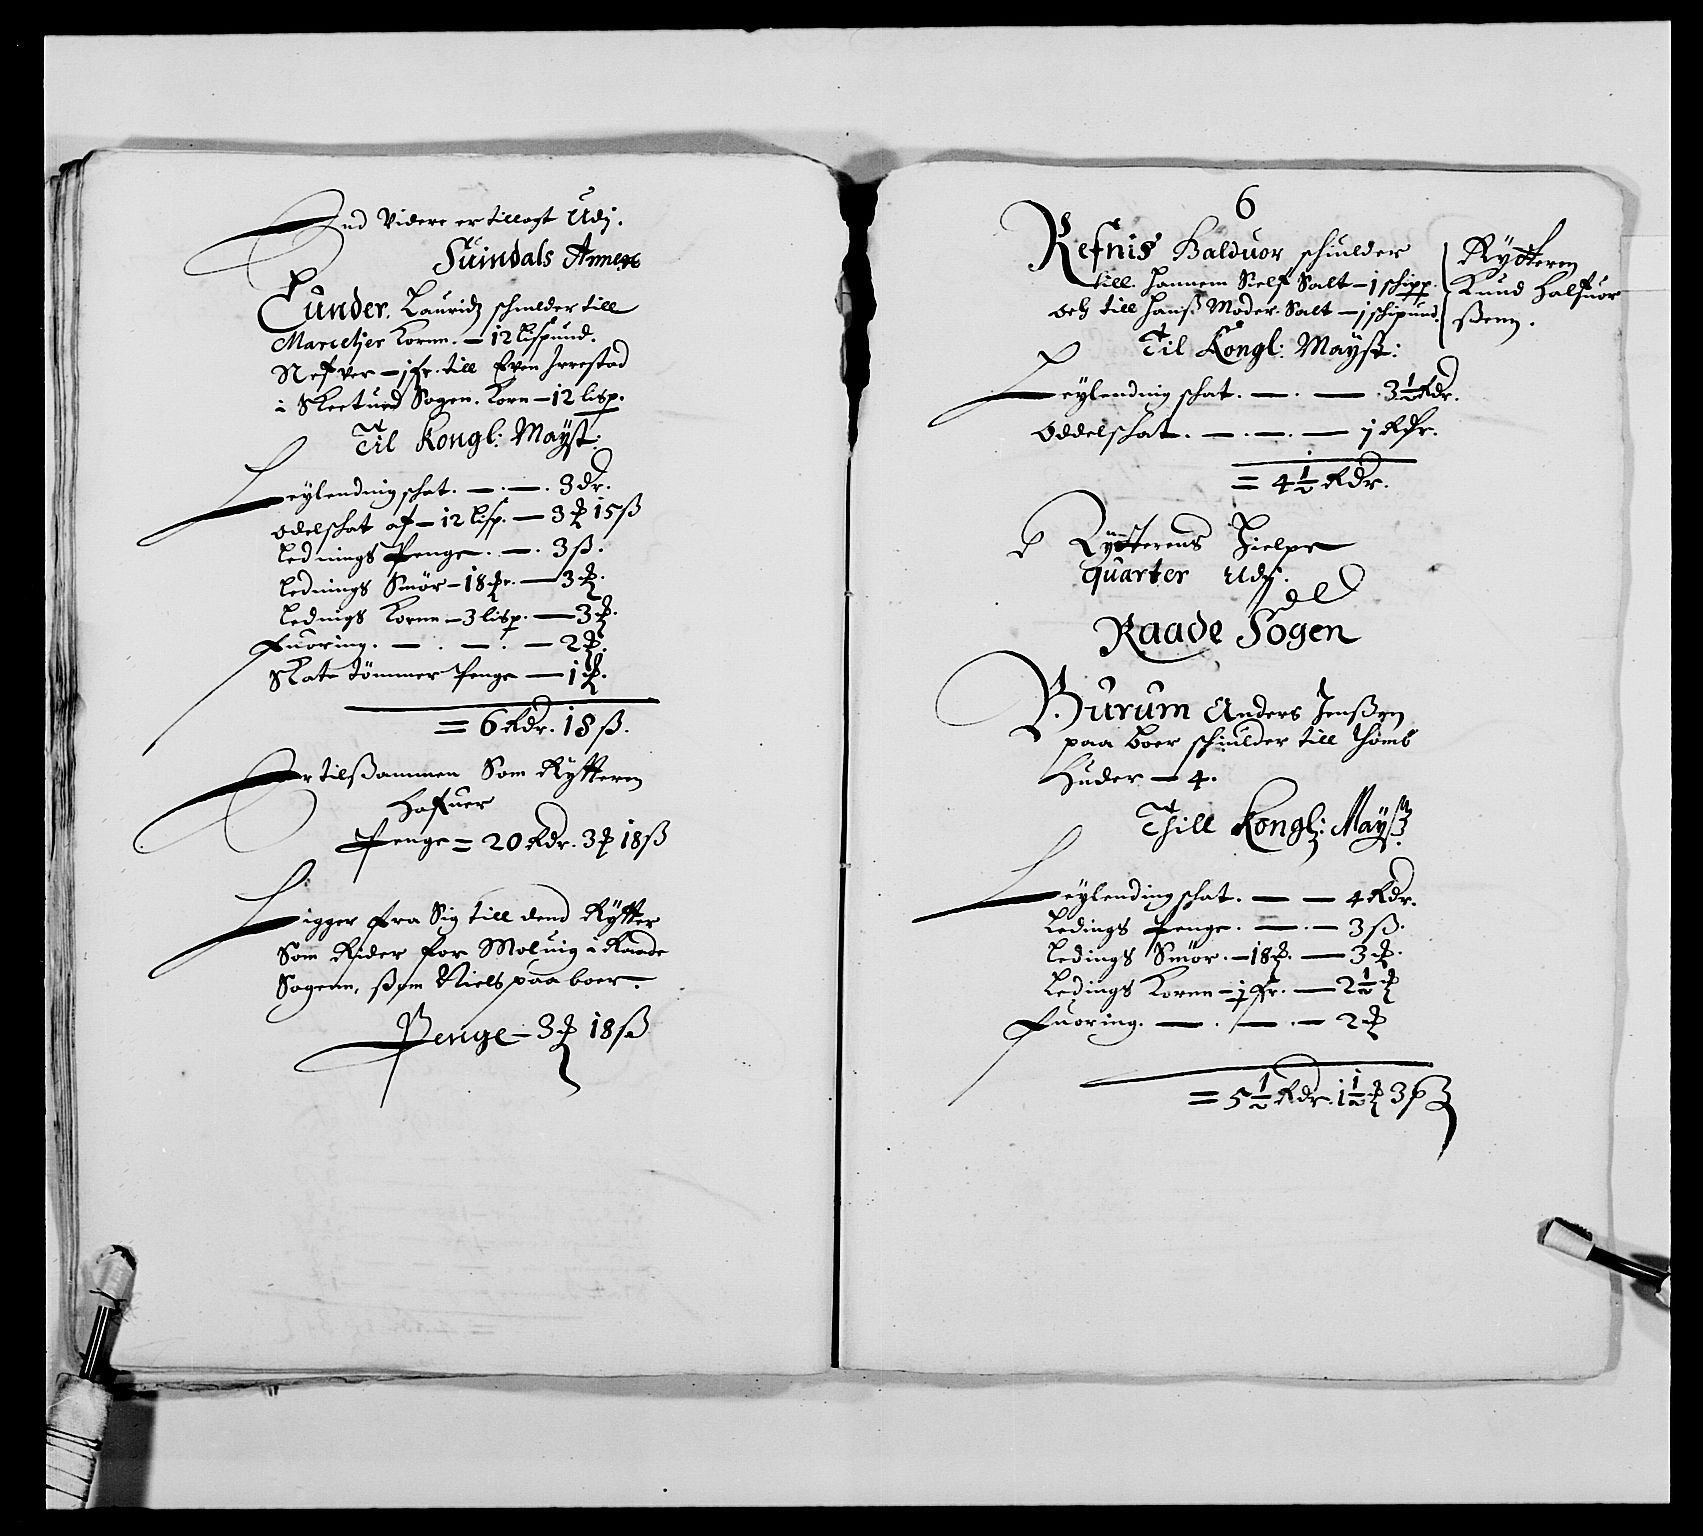 End Videre er tillagt Udj.
Suindals Annex
Lunder. Lauridz schylder till
Marcetjer Korn. – 12 lispund.
Nefver – j fr. till Even Irrestad
i Skeetued Sogen. Korn – 12 lisp.
Til Kongl: Mayst:
Leylending schat. – . – . 3 dr.
odelschat af – 12 lisp. – 3 ₰ 15 ß
Lednings Penge. – . 3 ß.
Lednings Smör – 18 ₰r. – 3 ₰.
Lednigs Korn – 3 lisp. – 3 ₰.
Fuoring. – . – . – 2 ₰.
Skate tömmer Penge – 1 ₰.
= 6 Rdr. 18 ß.
Er tilßammen Som Rytteren
Hafuer
Penge = 20 Rdr. 3 ₰ 18 ß
Ligger fra Sig till dend Rytter
Som Rider for Moluig i Raade
Sogenn, ßom Niels paa boer.
Penge – 3 ₰ 18 ß
6
Refnis Halduor schiulder
till. hannem Sielf Salt – j schipp.
och till hanß Moder. Salt – j schipund.
Rytteren
Knud Halfuor
ßenn.
Til Kongl: Mayst:
Leylending schat. – . – . 3½ Rdr.
Oddelschat. – . – . – j Rdr.
= 4½ Rdr.
Rytterens Hielpe
quarter Udj.
Raade Sogen
Burum Anders Jenßen
paa boer schiulder till Thomb
Huder – 4.
Thill Kongl: Mayst
Leylending schat. – – 4 Rdr.
Ledings Penge. – . – 3 ß.
Ledings Smör. – 18 ₰. – 3 ₰.
Ledings Korn – j fr. – 2½ ₰
Fuoring. – . – . – 2 ₰
= 5½ Rdr. 1½ ₰ 3 ß